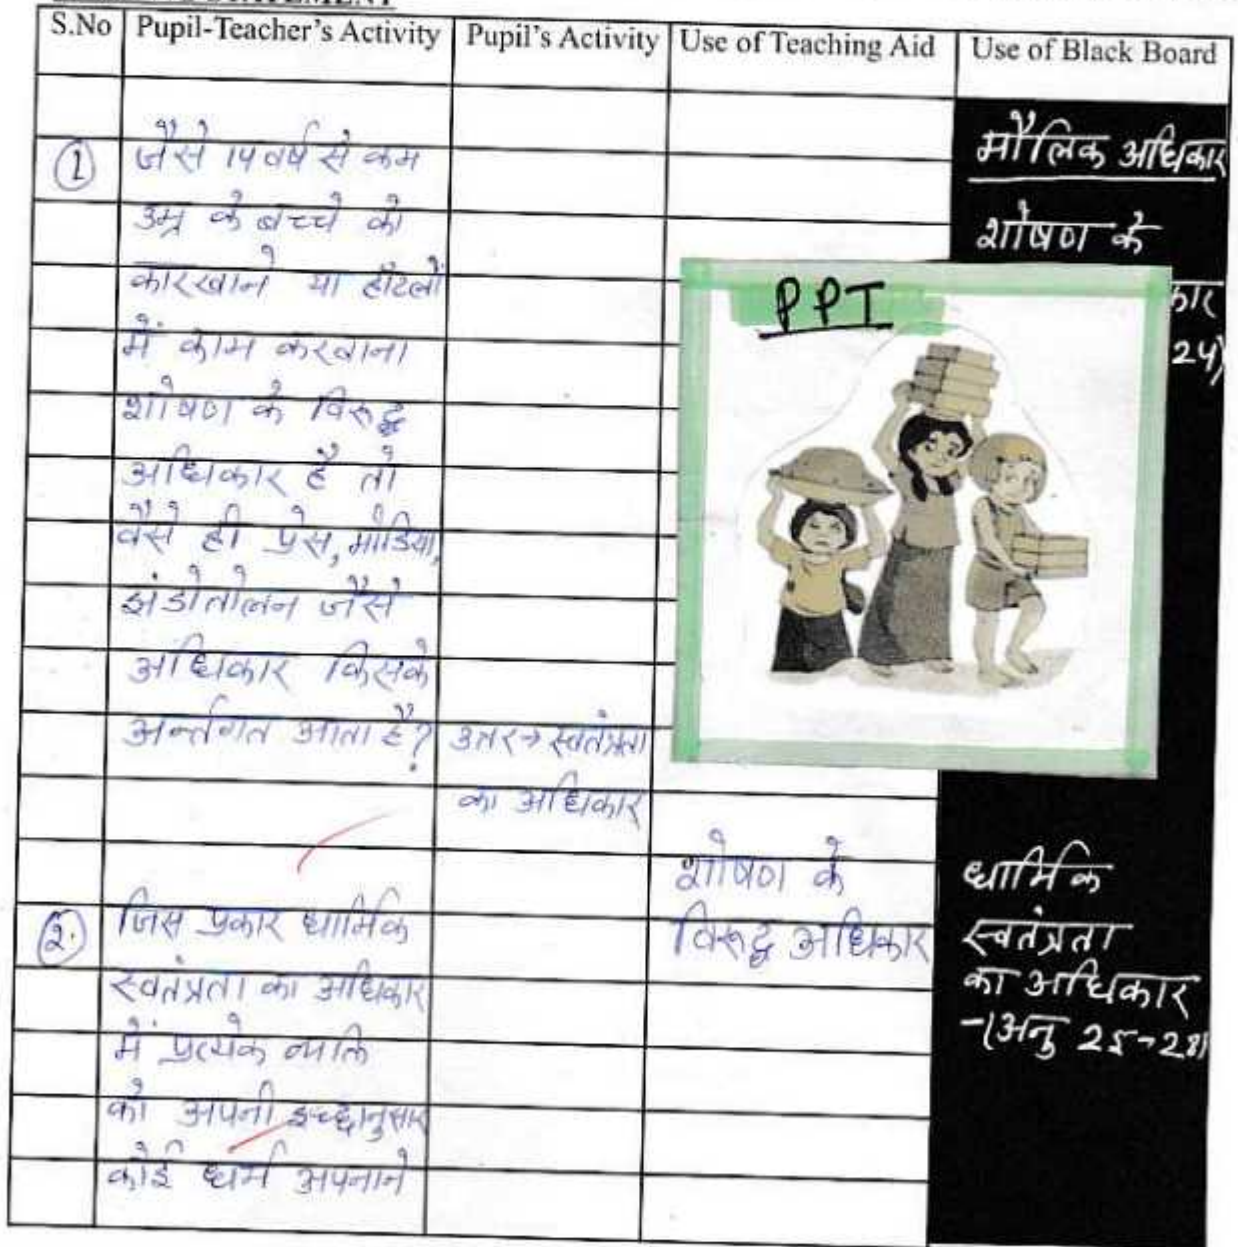 STATEMENT
S.No Pupil-Teacher's Activity Pupil's Activity Use of Teaching Aid Use of Black Board
① जैसे 14 वर्ष से कम
उम्र के बच्चे को
कारखाने या होटलों
में काम करवाना
शोषण के विरुद्ध
अधिकार है तो
वैसे ही प्रेस, मीडिया,
झंडोतोलन जैसे
अधिकार किसके
अर्न्तगत आता है?
उतर→ स्वतंत्रता
का अधिकार
PPT
शोषण के
विरुद्ध अधिकार
मौलिक अधिकार
शोषण के
कार
24)
② जिस प्रकार धार्मिक
स्वतंत्रता का अधिकार
में प्रत्येक व्यक्ति
को अपनी इच्छानुसार
कोई धर्म अपनाने
धार्मिक
स्वतंत्रता
का अधिकार
-(अनु 25-28)